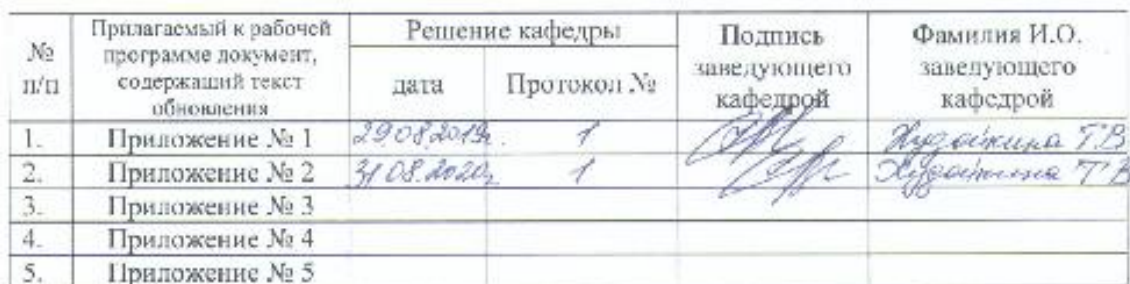 № п/п Прилагаемый к рабочей программе документ, содержащий текст обновления Решение кафедры Подпись заведующего кафедрой Фамилия И.О. заведующего кафедрой
дата Протокол №
1. Приложение № 1 29.08.2019г. 1 Худойкина Т.В
2. Приложение № 2 31.08.2020г 1 Худойкина Т В
3. Приложение № 3
4. Приложение № 4
5. Приложение № 5